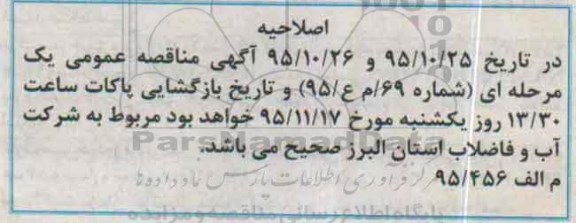 اصلاحیه
در تاریخ ۹۵/۱۰/۲۵ و ۹۵/۱۰/۲۶ آگهی مناقصه عمومی یک
مرحله ای (شماره ۶۹/م ع/۹۵) و تاریخ بازگشایی پاکات ساعت
۱۳/۳۰ روز یکشنبه مورخ ۹۵/۱۱/۱۷ خواهد بود مربوط به شرکت
آب و فاضلاب استان البرز صحیح می باشد.
م الف ۹۵/۴۵۶
ParsNamadData
مرکز فرآوری اطلاعات پارس نماد داده ها
پایگاه اطلاع رسانی مناقصه و مزایده